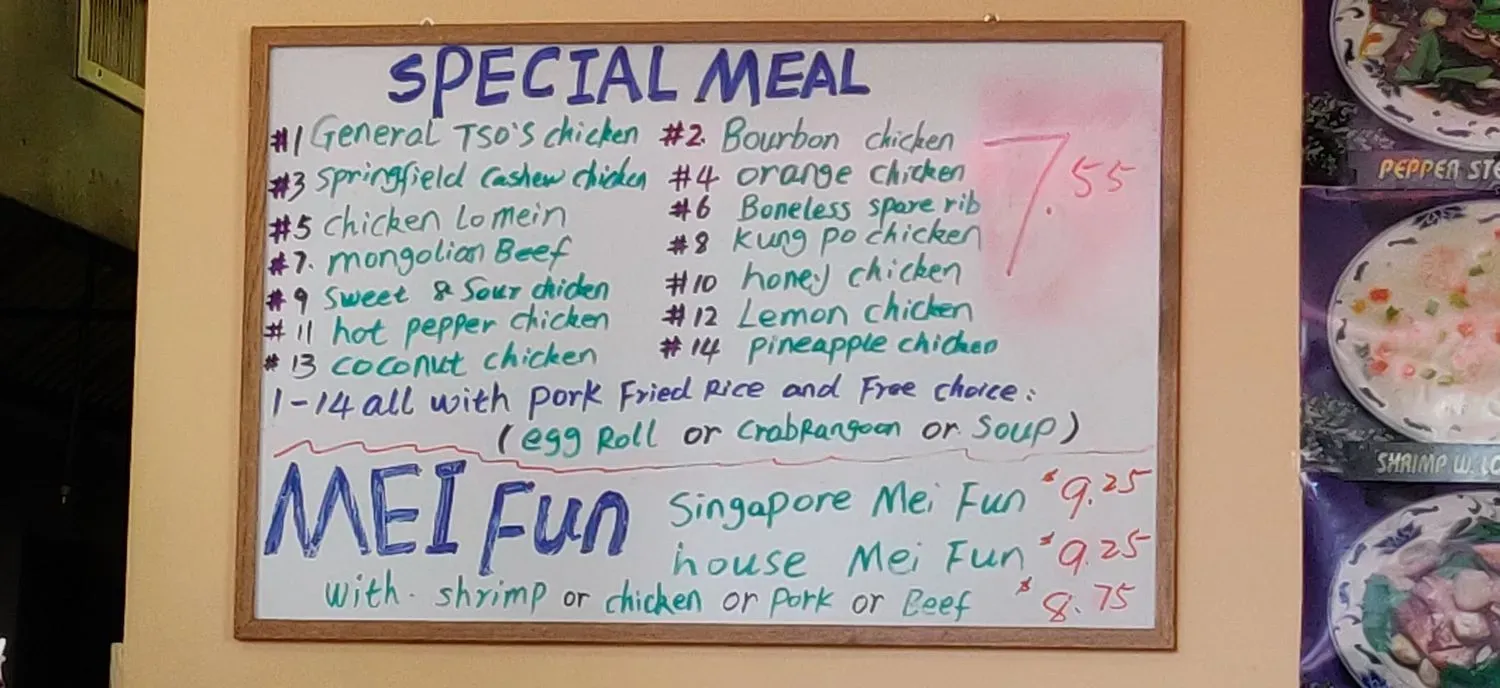 SPECIAL MEAL
#1 General TSO'S chicken #2. Bourbon chicken
7.55
#3 Springfield Cashew chicken #4 orange chicken
#5 chicken Lo mein #6 Boneless spare rib
#7. mongolian Beef #8 kung po chicken
#9 Sweet & Sour chicken #10 honey chicken
#11 hot pepper chicken #12 Lemon chicken
#13 coconut chicken #14 pineapple chicken
1-14 all with pork Fried Rice and Free choice:
(egg Roll or CrabRangoon or Soup)
MEI Fun Singapore Mei Fun $9.25
house Mei Fun $9.25
with. shrimp or chicken or Pork or Beef $8.75
PEPPER
SHRIMP W.